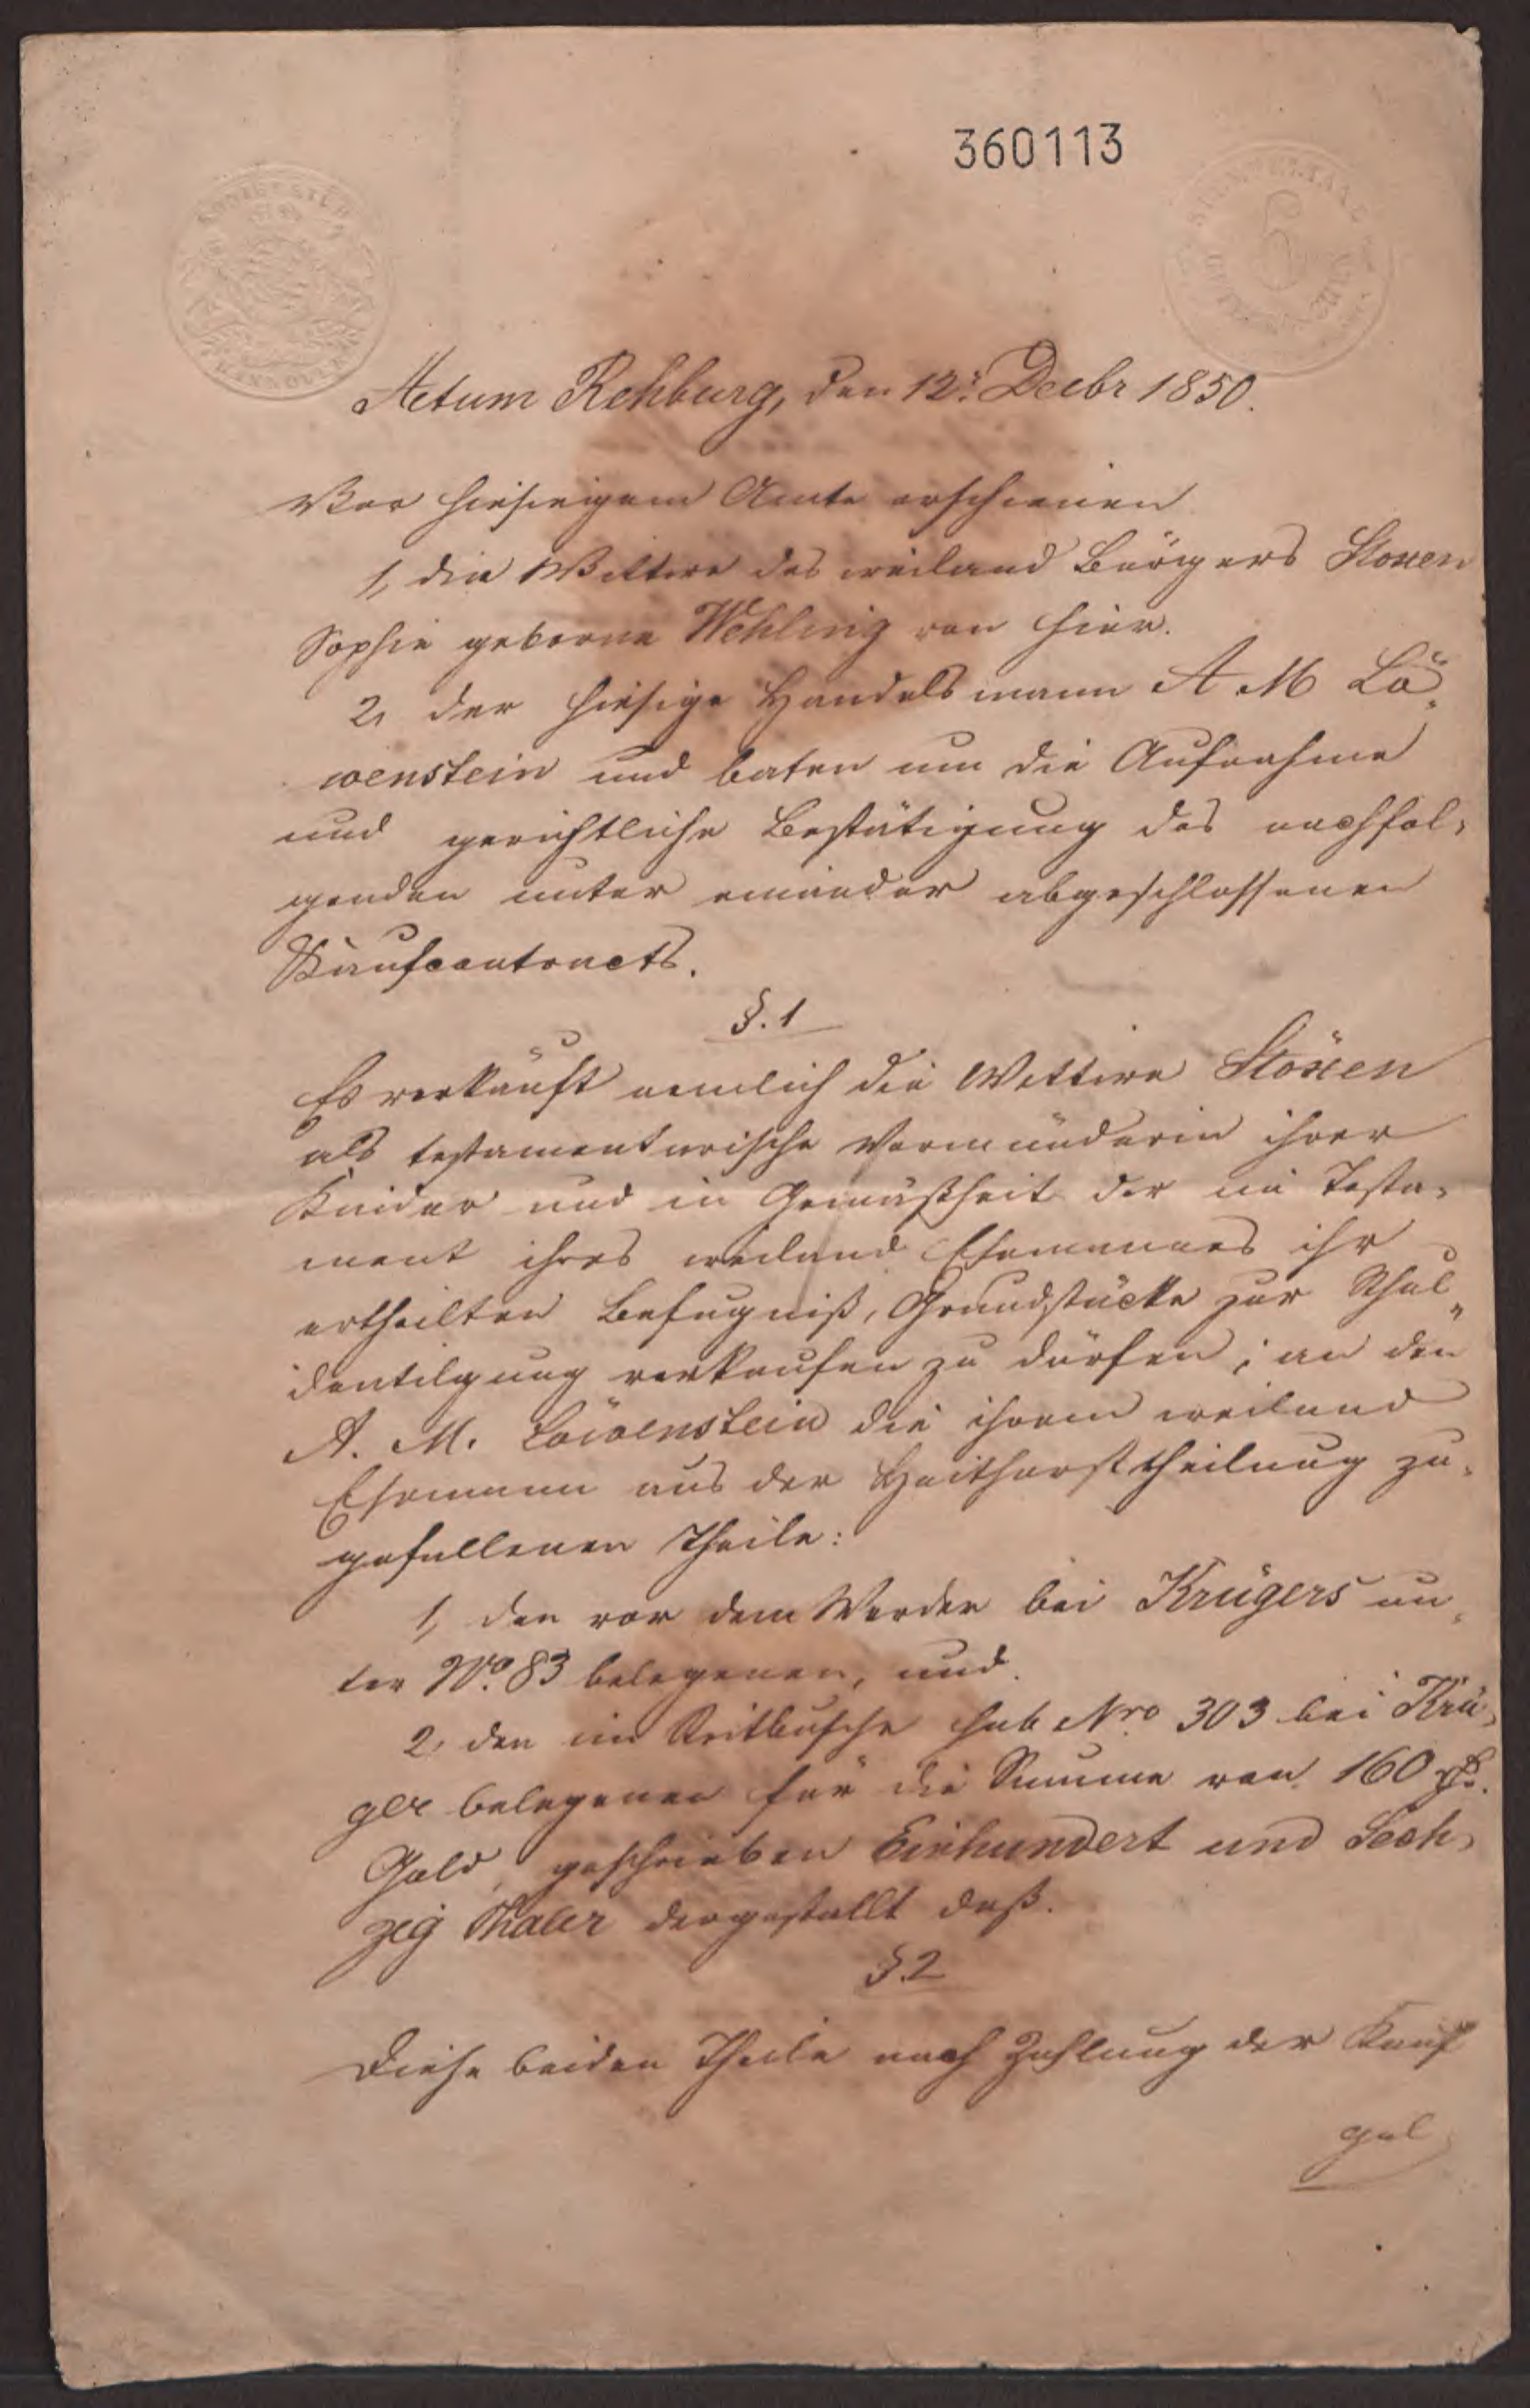 360113
HANNOVER
Actum Rehburg, den 12t Decbr 1850.
Vor hiesigem Amte erschienen
1, die Wittwe des weiland Bürgers Stoxen
Sophie geborne Wehling von hier.
2, der hiesige Handelsmann A M Lö-
wenstein und baten um die Aufnahme
und gerichtliche Bestätigung des nachfol-
genden unter einander abgeschlossenen
Kaufcontracts.
§. 1
Es verkauft nemlich die Wittwe Stöxen
als testamentarische Vormünderin ihrer
Kinder und in Gemäßheit der im Testa-
ment ihres weiland Ehemannes ihr
ertheilten Befugniß, Grundstücke zur Schul-
dentilgung verkaufen zu dürfen, an den
A. M. Löwenstein die ihrem weiland
Ehemann aus der theilung zu-
gefallenen Theile:
1, den vor dem Werder bei Krügers un-
ter No. 83 belegenen, und
2, den im sub Nro 303 bei Krü-
ger belegenen für die Summe von 160 rß.
Gold, geschrieben Einhundert und Sech-
zig Thaler dergestallt daß.
§. 2
Diese beiden Theile nach Zahlung der Kauf
gel